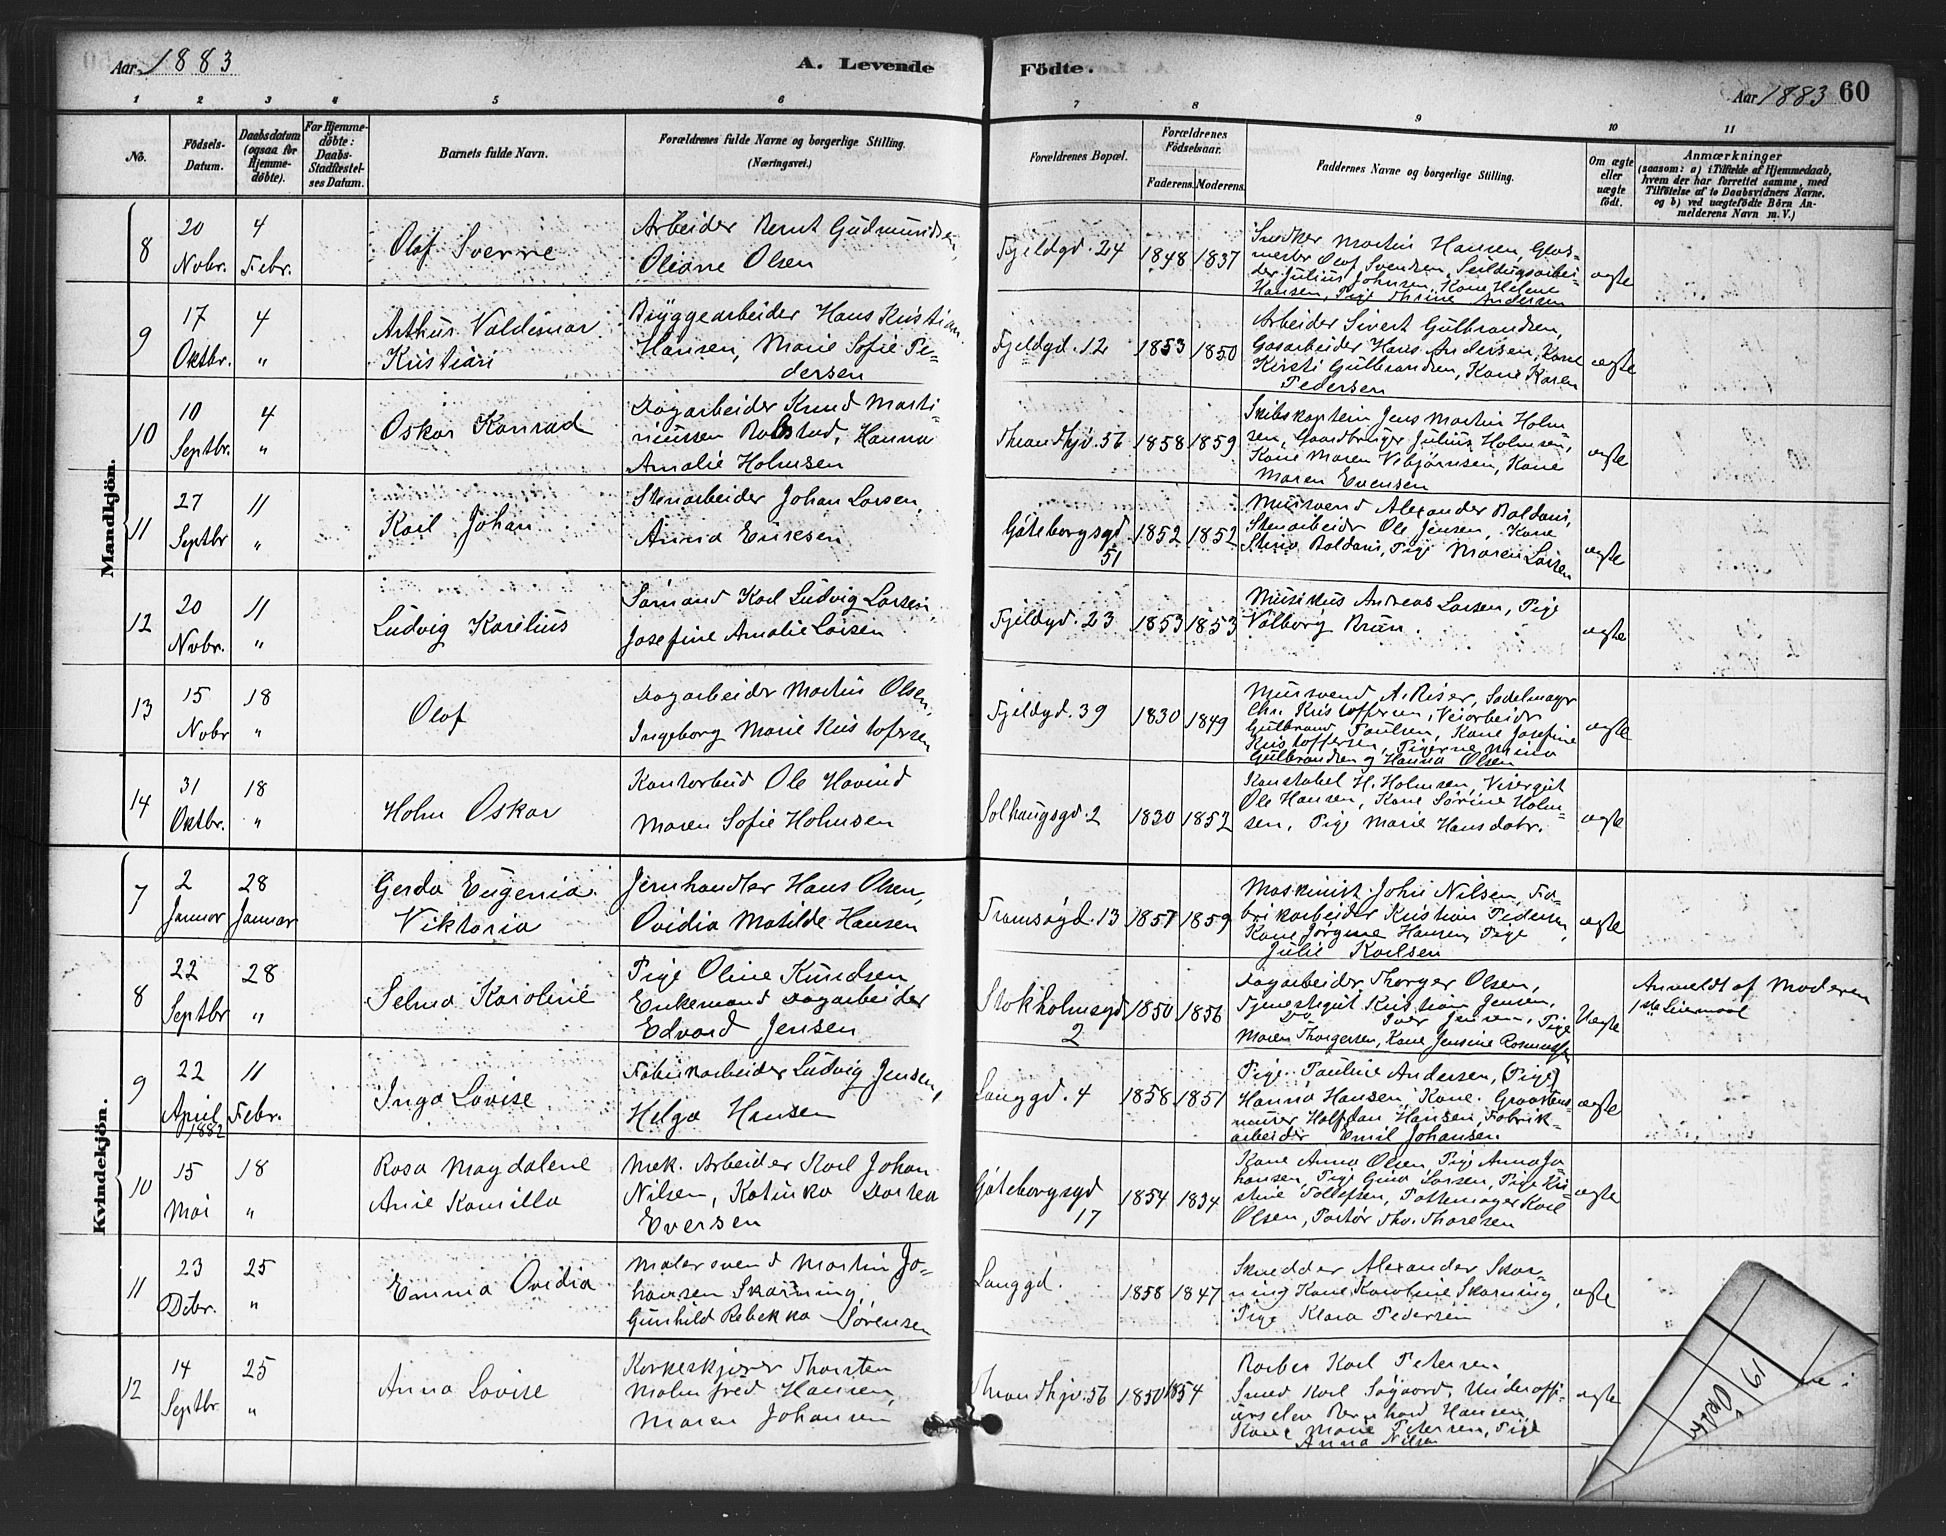 Aar 1883
A. Levende Födte.
Aar 1883 60
1 2 3 4 5 6 7 8 9 10 11
No.
Födsels-Datum.
Daabsdatum (ogsaa for Hjemme-döbte).
For Hjemme-döbte: Daabs-Stadfæstel-ses Datum.
Barnets fulde Navn.
Forældrenes fulde Navne og borgerlige Stilling. (Næringsvei.)
Forældrenes Bopæl.
Forældrenes Födselsaar.
Faderens. Moderens.
Faddernes Navne og borgerlige Stilling.
Om ægte eller uægte födt.
Anmærkninger
(saasom: a) i Tilfælde af Hjemmedaab,
hvem der har forrettet samme, med
Tilföielse af to Daabsvidners Navne,
og b) ved uægtefödte Börn An-
melderens Navn m. V.)
Mandkjön.
8
20 Novbr.
4 Febr.
Olaf Sverre
Arbeider Bernt Gudmundsen,
Oliane Olsen
Fjeldgd. 24
1848 1837
Snedker Martin Hansen, Glas-
mester Olaf Svendsen, Seildugsarbei-
der Julius Johnsen, Kone Helene
Hansen, Pige Thrine Andersen
ægte
9
17 Oktbr.
4 "
Arthur Valdemar
Kristian
Bryggearbeider Hans Kristian
Hansen, Marie Sofie Pe-
dersen
Fjeldgd. 12
1853 1850
Arbeider Sivert Gulbrandsen,
Gasarbeider Hans Andersen, Kone
Kirsti Gulbrandsen, Kone Karen
Pedersen
ægte
10
10 Septbr.
4 "
Oskar Konrad
Dagarbeider Knud Marti-
niussen Rolstad, Hanna
Amalie Holmsen
Thrandhjv. 56
1858 1859
Skibskaptein Jens Martin Holm
sen, Gaardbruger Julius Holmsen,
Kone Maren Vibjørnsen, Kone
Maren Evensen
ægte
11
27 Septbr
11 "
Karl Johan
Stenarbeider Johan Larsen,
Anna Eriksen
Göteborgsgd 51
1852 1852
Mursvend Alexander Baldani,
Stenarbeider Ole Jensen, Kone
Stina Baldani, Pige Maren Larsen
ægte
12
20 Novbr.
11 "
Ludvig Karelius
Sømand Karl Ludvig Larsen,
Josefine Amalie Larsen
Fjeldgd. 23
1853 1853
Musikus Andreas Larsen, Pige
Valborg Brun.
ægte
13
15 Novbr
18 "
Olaf
Dagarbeider Martin Olsen,
Ingeborg Marie Kristofersen
Fjeldgd. 39
1830 1849
Mursvend A. Riser, Sadelmager
Chr. Kristoffersen, Veiarbeider
Gulbrand Paulsen, Kone Josefine
Kristoffersen, Pigerne Mina
Gulbrandsen og Hanna Olsen
ægte
14
31 Oktbr.
18 "
Holm Oskar
Kontorbud Ole Hovind
Maren Sofie Holmsen
Solhaugsgd. 2
1830 1852
Konstabel H. Holmsen, Visergut
Ole Hansen, Kone Sørine Holm-
sen, Pige Marie Hansdatr.
ægte
Kvindekjön.
7
2 Januar
28 Januar
Gerda Eugenia
Viktoria
Jernhandler Hans Olsen,
Ovidia Matilde Hansen
Tromsøgd. 13
1857 1859
Maskinist John Nilsen, Fa-
brikarbeider Kristian Pedersen,
Kone Jørgine Hansen, Pige
Julie Karlsen
ægte
8
22 Septbr
28 "
Selma Karoline
Pige Oline Knudsen
Enkemand Dagarbeider
Edvard Jensen
Stokholmsgd 2
1850 1856
Dagarbeider Thorger Olsen,
Tjenestegut Kristian Jensen,
Do Iver Jensen, Pige
Maren Thorgersen, Kone Jensine Rasmussen
Uægte
Anmeldt af Moderen
1ste Leiermaal
9
22 April 1882
11 Febr.
Inga Lovise
Fabrikarbeider Ludvig Jensen,
Helga Hansen
Langgd. 4
1858 1851
Pige Pauline Andersen, (Pige)
Hanna Hansen, Kone. Graastens-
murer Halfdan Hansen, Fabrik-
arbeider Emil Johansen
ægte
10
15 Mai
18 "
Rosa Magdalene
Anie Kamilla
Mek. Arbeider Karl Johan
Nilsen, Katinka Dortea
Eversen
Göteborgsgd 17
1854 1834
Kone Anna Olsen, Pige Anna Jo
hansen, Pige Gina Larsen, Pige Kri-
stine Tollefsen, Pottemager Karl
Olsen, Partør Thv. Thoresen
ægte
11
23 Debr.
25 "
Emma Ovidia
Malersvend Martin Jo-
hansen Skarning,
Gunhild Rebekka Sørensen
Langgd.
1858 1847
Skrædder Alexander Skar-
ning Kone Karoline Skarning,
Pige Klara Pedersen
ægte
12
14 Septbr.
25 "
Anna Lovise
Korkeskjærer Thorsten
Malmfred Hansen,
Maren Johansen
Thrandhjv. 56
1850 1854
Barber Karl Petersen
Smed Karl Søgaard, Underoffi-
cerselev Bernhard Hansen
Kone Marie Petersen, Pige
Anna Nilsen
ægte
19
Oktbr